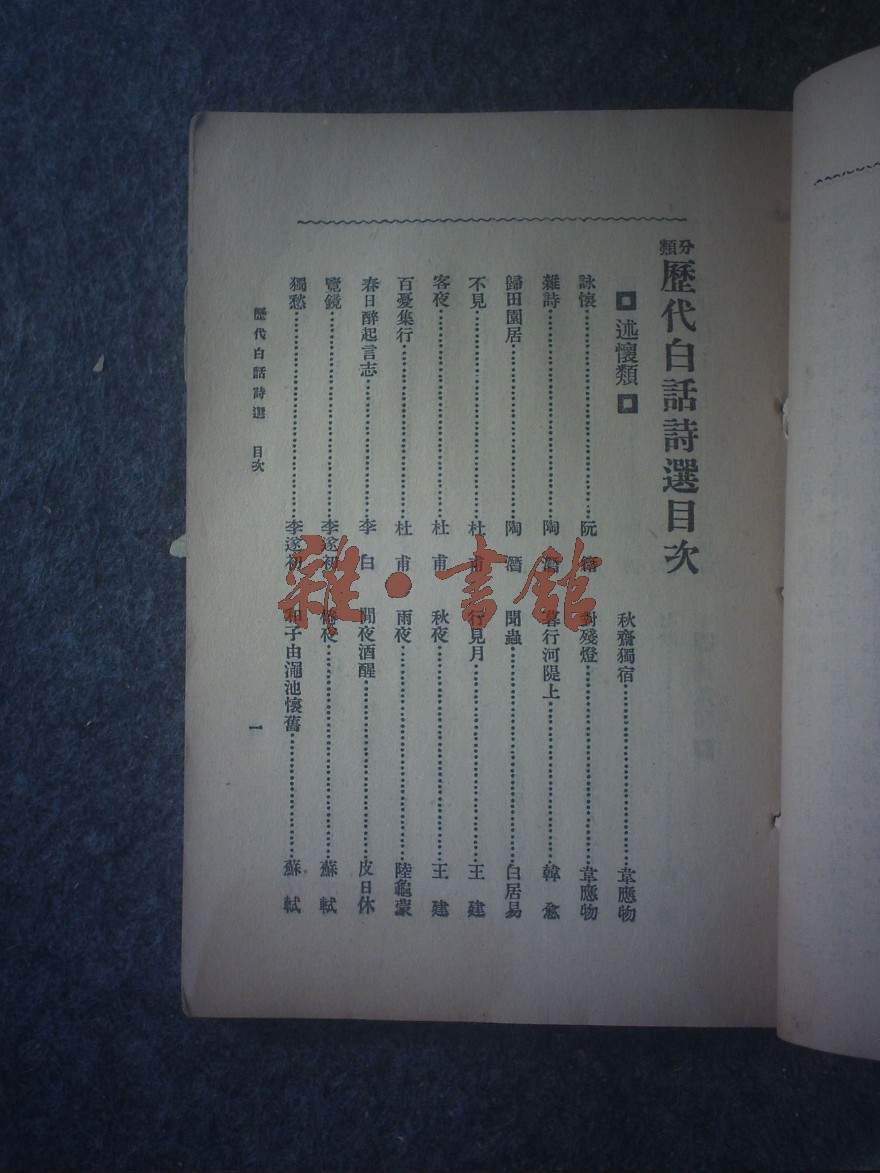 分類歷代白話詩選目次
述懷類
詠懷……阮籍
雜詩……陶潛
歸田園居……陶潛
不見……杜甫
客夜……杜甫
百憂集行……杜甫
春日醉起言志……李白
覽鏡……李遂初
獨愁……李遂初
秋齋獨宿……韋應物
對殘燈……韋應物
暮行河隄上……韓愈
聞蟲……白居易
行見月……王建
秋夜……王建
雨夜……陸龜蒙
閒夜酒醒……皮日休
倦夜……蘇軾
和子由澠池懷舊……蘇軾
歷代白話詩選 目次
一
雜·書館